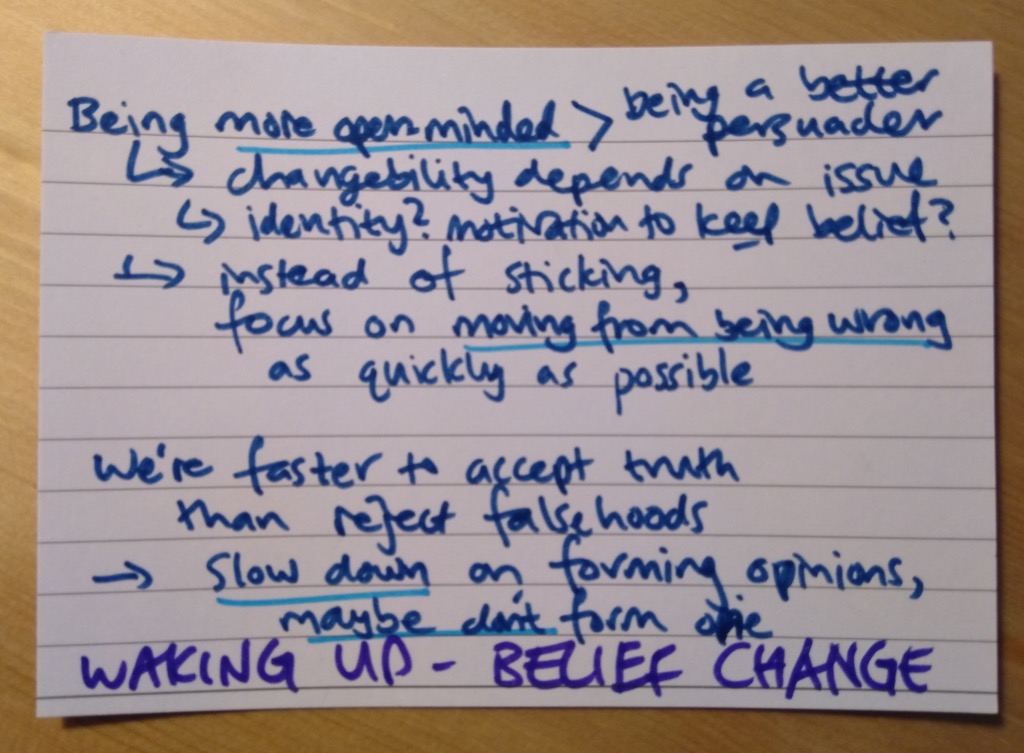 Being more open-minded > being a better persuader
↳ changebility depends on issue
↳ identity? motivation to keep belief?
↳ instead of sticking,
focus on moving from being wrong
as quickly as possible
We're faster to accept truth
than reject falsehoods
→ Slow down on forming opinions,
maybe don't form one
WAKING UP - BELIEF CHANGE